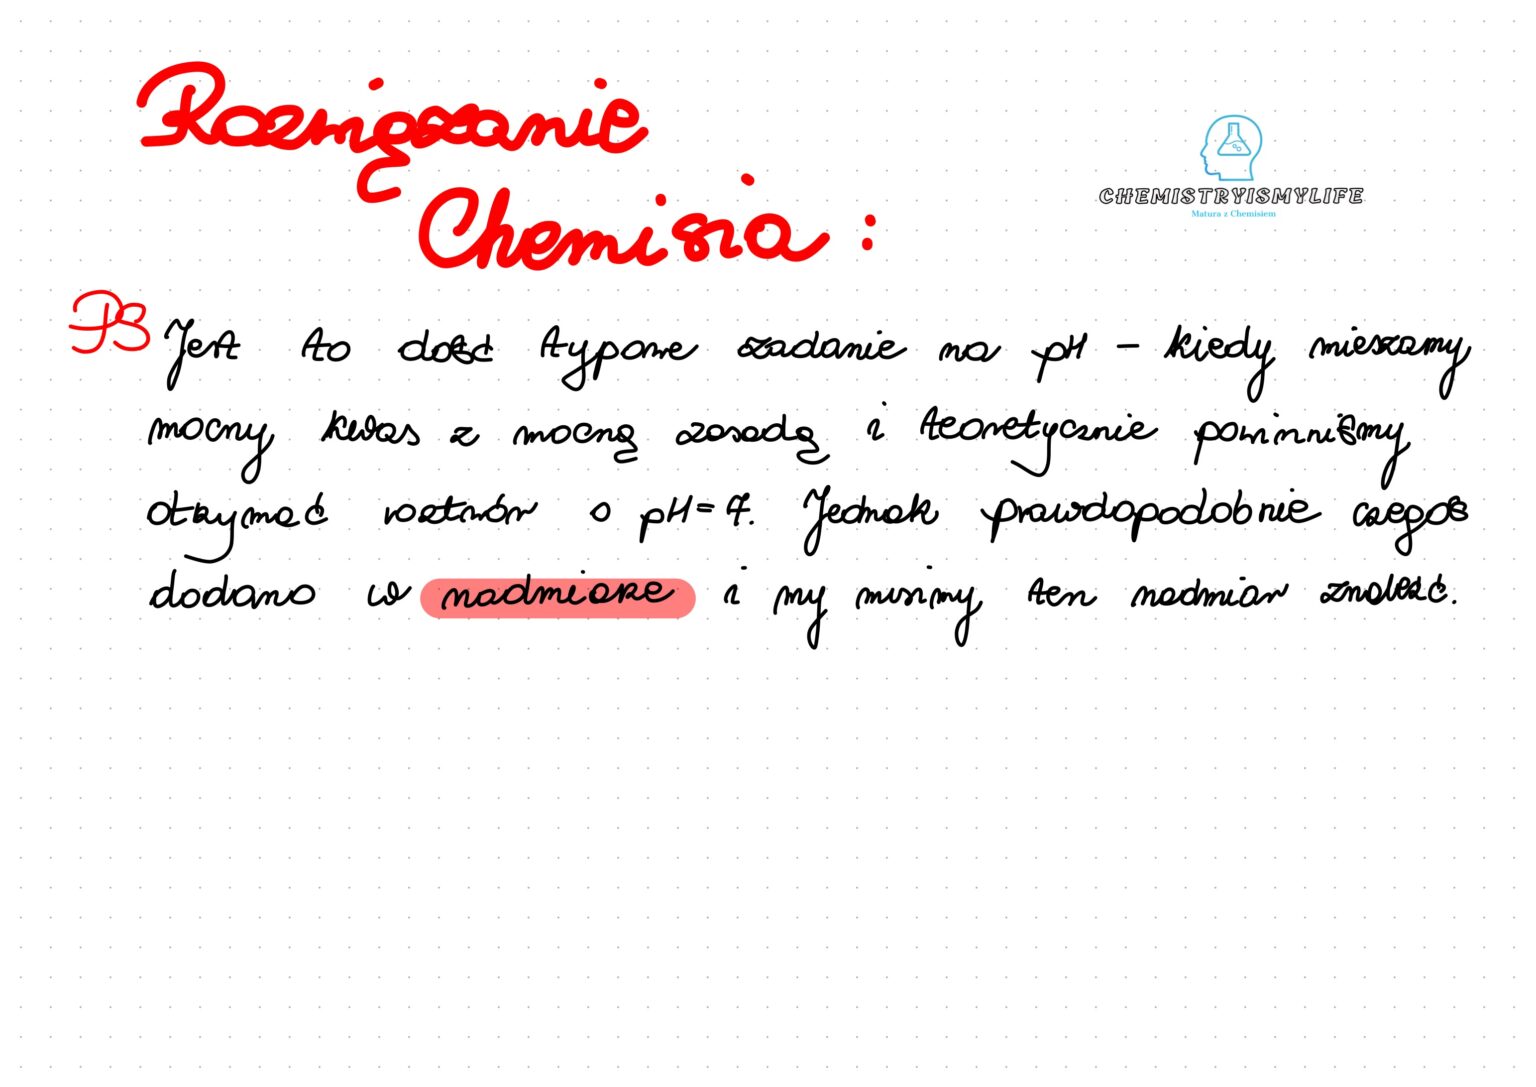 Rozwiązanie
Chemisia:
CHEMISTRYISMYLIFE
Matura z Chemisiem
PS Jest to dość typowe zadanie na pH - kiedy mieszamy
mocny kwas z mocną zasadą i teoretycznie powinniśmy
otrzymać roztwór o pH = 7. Jednak prawdopodobnie czegoś
dodano w nadmiarze i my musimy ten nadmiar znaleźć.